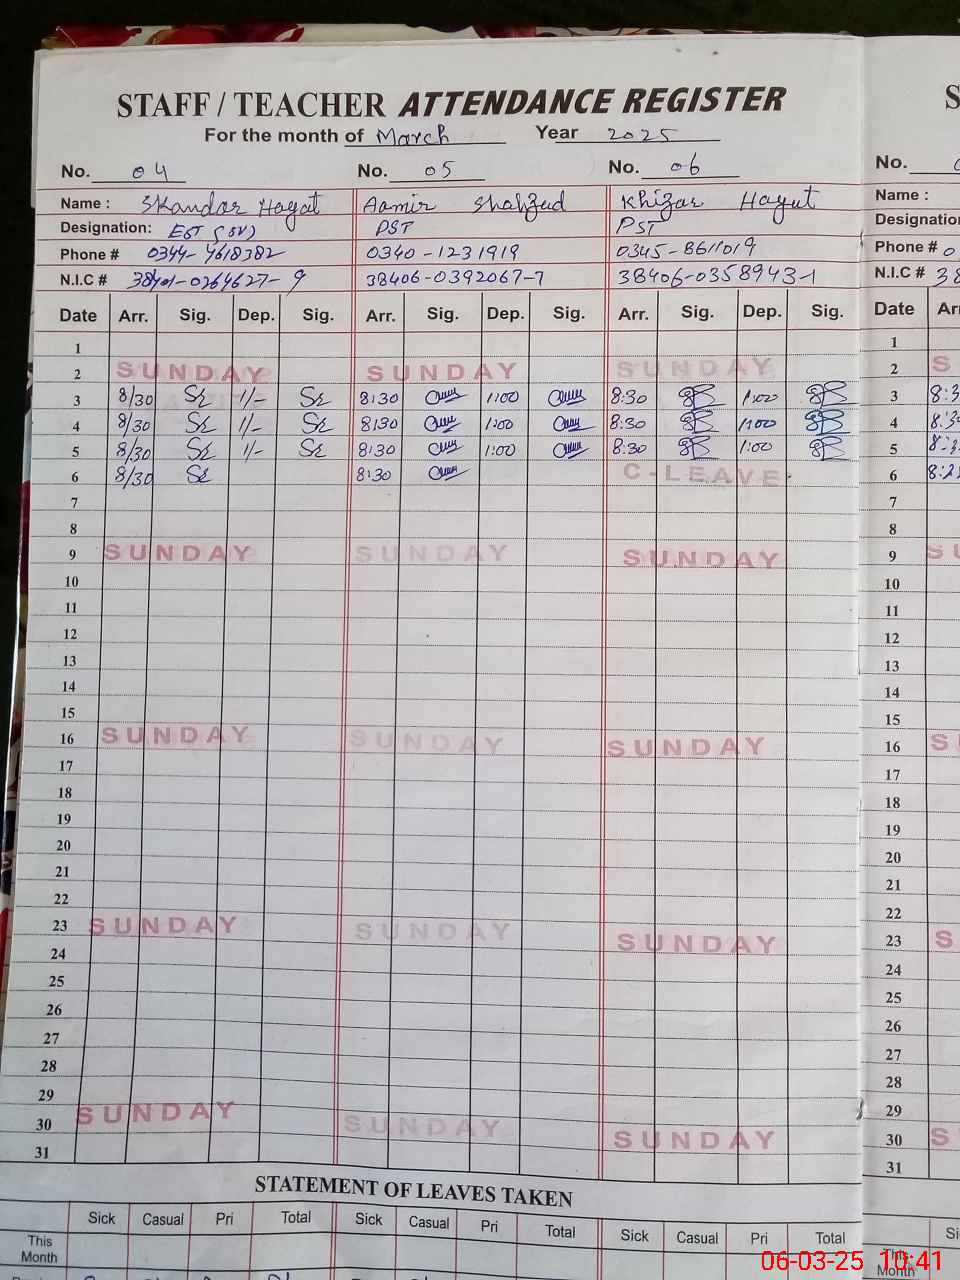 STAFF / TEACHER ATTENDANCE REGISTER
For the month of March Year 2025
No. 04 No. 05 No. 06 No.
Name : Skandar Hayat Aamir Shahzad Khizar Hayat Name :
Designation: EST (SV) PST PST Designation
Phone # 0344-4618382 0340-1231919 0345-8611019 Phone # 0
N.I.C # 38401-0264627-9 38406-0392067-7 38406-0358943-1 N.I.C # 38
Date Arr. Sig. Dep. Sig. Arr. Sig. Dep. Sig. Arr. Sig. Dep. Sig. Date
1 1
2 SUNDAY SUNDAY SUNDAY 2 S
3 8/30 1/- 8:30 1:00 8:30 1:00 3
4 8/30 1/- 8:30 1:00 8:30 1:00 4
5 8/30 1/- 8:30 1:00 8:30 1:00 5
6 8/30 8:30 C-LEAVE 6
7 7
8 8
9 SUNDAY SUNDAY SUNDAY 9
10 10
11 11
12 12
13 13
14 14
15 15
16 SUNDAY SUNDAY SUNDAY 16 S
17 17
18 18
19 19
20 20
21 21
22 22
23 SUNDAY SUNDAY SUNDAY 23 S
24 24
25 25
26 26
27 27
28 28
29 29
30 SUNDAY SUNDAY SUNDAY 30 S
31 31
STATEMENT OF LEAVES TAKEN
Sick Casual Pri Total Sick Casual Pri Total Sick Casual Pri Total
This Month This Month
06-03-25 10:41